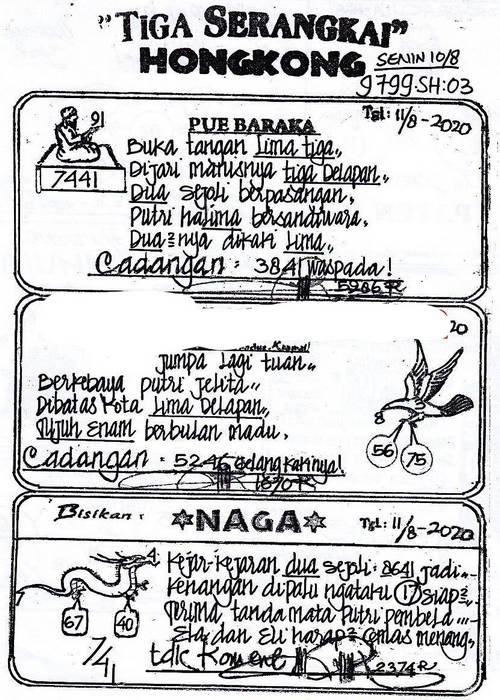 "TIGA SERANGKAI"
HONGKONG
SENIN 10/8
9799.SH:03
Tgl: 11/8-2020
91
7441
PUE BARAKA
Buka tangan lima tiga,,
Dijari manisnya tiga Delapan,,
Dua sejoli berpasangan,
Putri halima bersandiwara,
Dua²nya dikaki lima,,
Cadangan: 3841 waspada!
5986.R
20
jumpa lagi tuan,,
Berkebaya putri jelita,,
Dibatas kota lima Delapan,,
Tujuh enam berbulan madu,
Cadangan: 5246 gelang kakinya!
1870R
8
56
75
Bisikan:
NAGA
Tgl: 11/8-2020
4
67
40
741
Kejar-kejaran dua sejoli: 8641 jadi,,
Kenangan dipalu ngataku 17 siap²,
Terima, tanda mata putri pembela
Ela dan Eli harap² cemas menang
tdk Komene
2374R